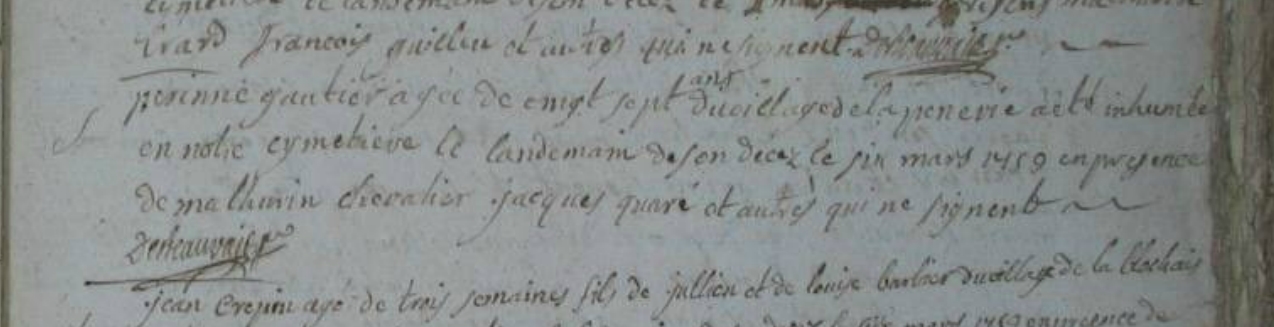 cymetiere le landemain de son decez le
Erard françois guilleu et autres qui ne signent Desbeauvais pr
perinne gautier agée de vingt sept ans du village de la penerie a eté inhumée
en notre cymetiere le landemain de son décez le six mars 1759 en presence
de mathurin chevalier jacques quaré et autres qui ne signent
Desbeauvais pr
jean Crepin agé de trois semaines fils de jullien et de louise barbier du village de la blochais
mars 1759 en presence de